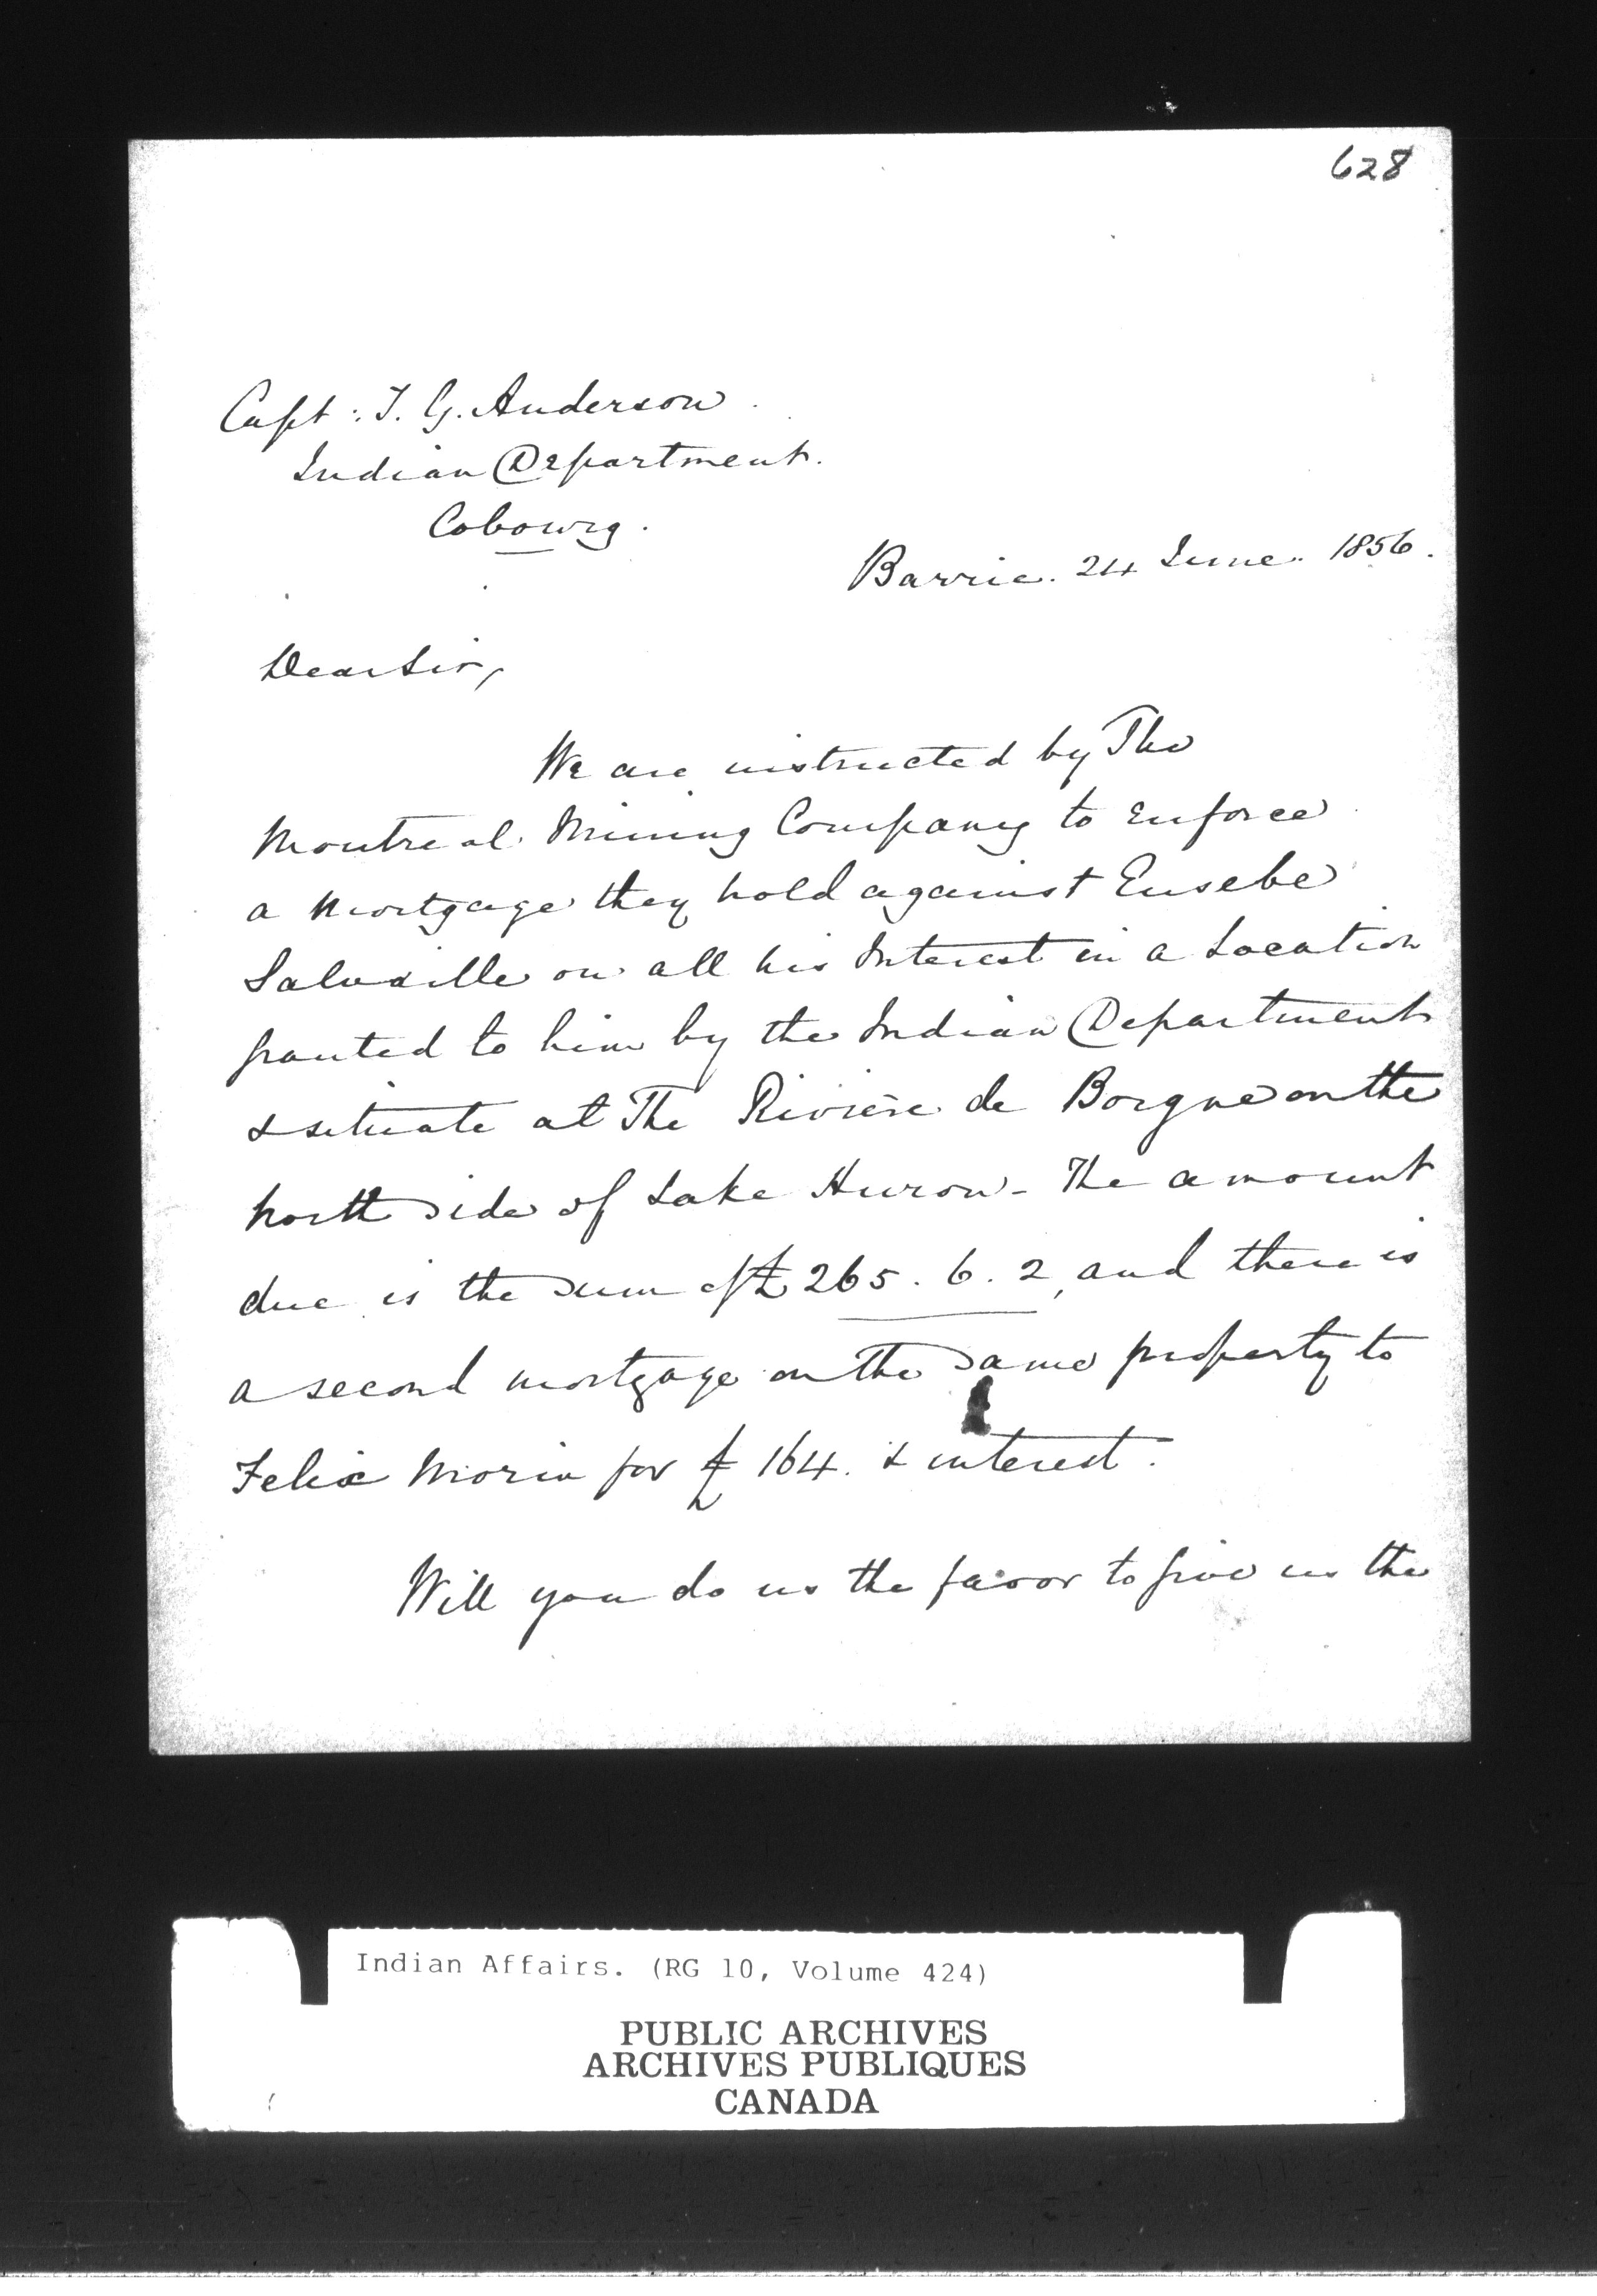 628
Capt: T. G. Anderson
Indian Department.
Cobourg.
Barrie. 24 June. 1856.
Dear Sir,
We are instructed by The
Montreal Mining Company to enforce
a Mortgage they hold against Eusebe
on all his Interest in a Location
granted to him by the Indian Department
& situate at The Rivière de Borgne on the
North Side of Lake Huron - The amount
due is the Sum of £265. 6. 2, and there is
a second mortgage on the Same property to
Felix Morin for £164. & interest.
Will you do us the favor to give us the
Indian Affairs. (RG 10, Volume 424)
PUBLIC ARCHIVES
ARCHIVES PUBLIQUES
CANADA